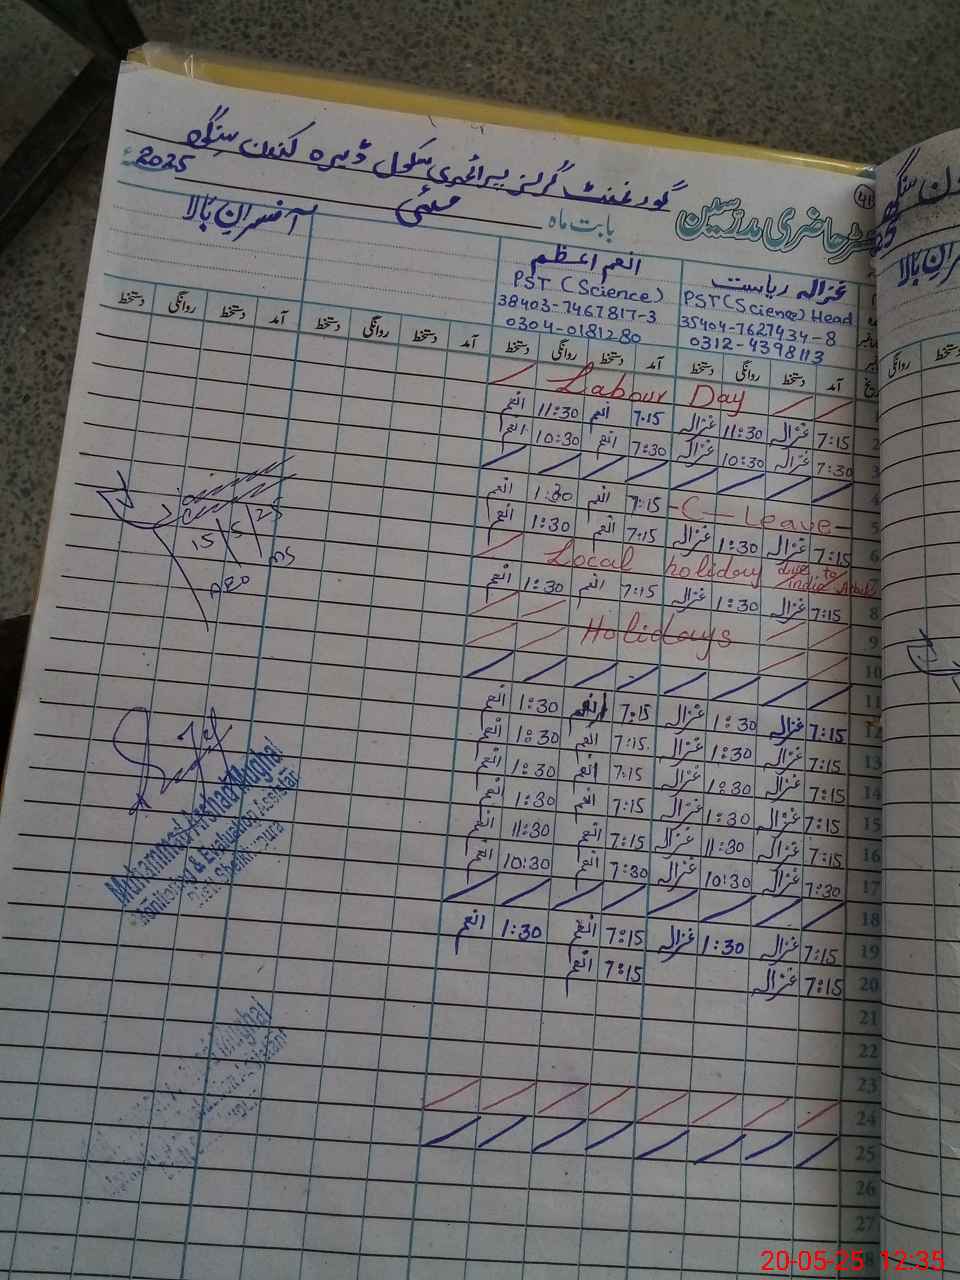 گورنمنٹ گرلز پرائمری سکول ڈیرہ کندن سنگھ
2025ء
41
حاضری مدرسین
بابت ماہ مئی
آفسران بالا
انعم اعظم
PST (Science)
38403-7467817-3
0304-0181280
غزالہ ریاست
PST (Science) Head
35404-7627434-8
0312-4398113
آمد دستخط روانگی دستخط آمد دستخط روانگی دستخط آمد دستخط روانگی دستخط آمد دستخط روانگی دستخط
Labour Day
2 7:15 غزالہ 11:30 غزالہ 7:15 انعم 11:30 انعم
3 7:30 غزالہ 10:30 غزالہ 7:30 انعم 10:30 انعم
4
5 C— Leave 7:15 انعم 1:30 انعم
6 7:15 غزالہ 1:30 غزالہ 7:15 انعم 1:30 انعم
Local holiday due to India Attack
8 7:15 غزالہ 1:30 غزالہ 7:15 انعم 1:30 انعم
9 Holidays
10
11
12 7:15 غزالہ 1:30 غزالہ 7:15 انعم 1:30 انعم
13 7:15 غزالہ 1:30 غزالہ 7:15 انعم 1:30 انعم
14 7:15 غزالہ 1:30 غزالہ 7:15 انعم 1:30 انعم
15 7:15 غزالہ 1:30 غزالہ 7:15 انعم 1:30 انعم
16 7:15 غزالہ 11:30 غزالہ 7:15 انعم 11:30 انعم
17 7:30 غزالہ 10:30 غزالہ 7:30 انعم 10:30 انعم
18
19 7:15 غزالہ 1:30 غزالہ 7:15 انعم 1:30 انعم
20 7:15 غزالہ 7:15 انعم
21
22
23
24
25
26
27
15/5/25
AEO
Muhammad Arshad Mughal
Monitoring & Evaluation Assistant
Distt. Sheikhupura
20-05-25 12:35